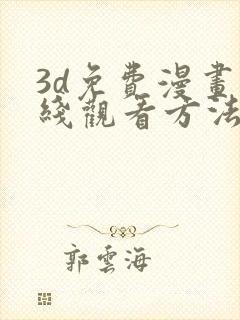 3d免費漫畫
綫觀看方法
郭雲海